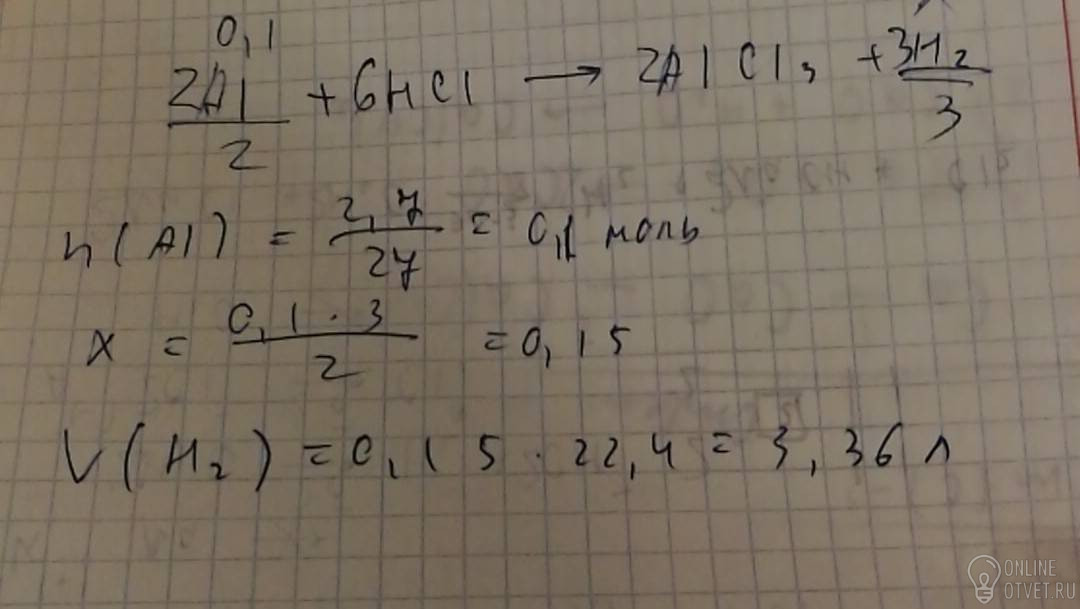 0,1
2Al + 6HCl → 2AlCl3 + 3H2
2 3
n(Al) = 2,7/27 = 0,1 моль
x = 0,1 · 3/2 = 0,15
V(H2) = 0,15 · 22,4 = 3,36 л
ONLINE
OTVET.RU